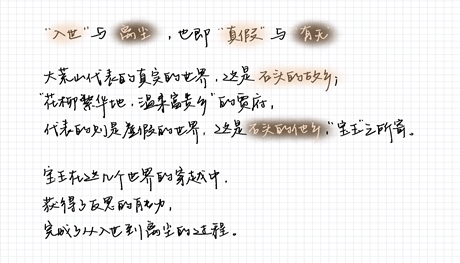 “入世”与 离尘，也即“真假”与 有无
大荒山代表的真实的世界，这是石头的故乡；
“花柳繁华地，温柔富贵乡”的贾府，
代表的则是虚假的世界，这是石头的他乡，“宝玉”之所寄。
宝玉在这几个世界的穿越中，
获得了反思的能力，
完成了从入世到离尘的过程。